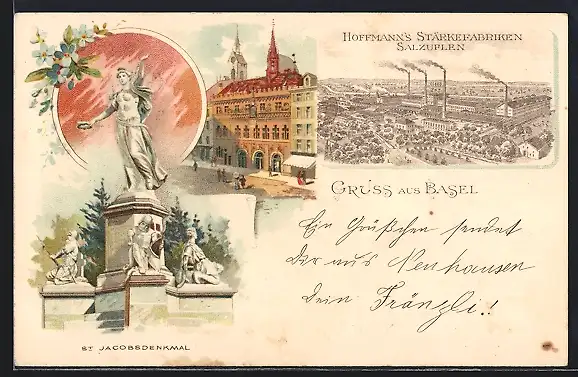 HOFFMANN'S STÄRKEFABRIKEN
SALZUFLEN
GRUSS AUS BASEL
Ein Grüßchen sendet
dir aus Neuhausen
dein Fränzli!
ST JACOBSDENKMAL